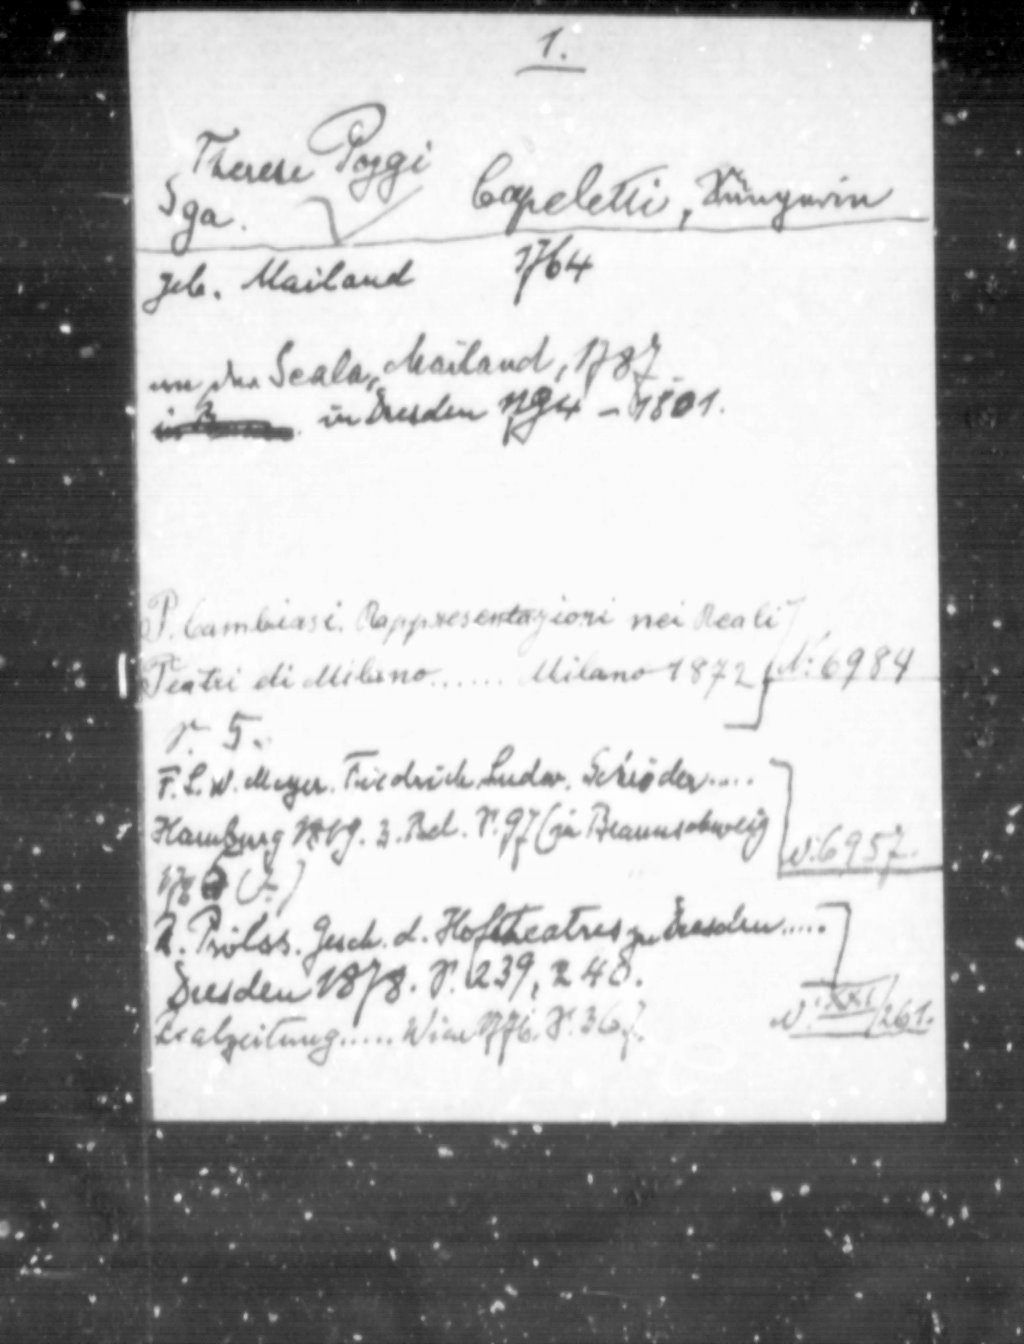 1.
Therese Poggi
Sga. Capeletti, Sängerin
geb. Mailand 1764
an der Scala, Mailand, 1787
in Dresden 1794 - 1801.
P. Cambiasi. Rappresentazioni nei Reali
Teatri di Milano...... Milano 1872 N: 6984
S. 5.
F. L. W. Meyer. Friedrich Ludw. Schröder....
Hamburg 1819. 2. Bd. S. 97 (in Braunschweig
N. 6957.
R. Prölss. Gesch. d. Hoftheatres zu Dresden.....
Dresden 1878. S. 239, 248.
Realzeitung..... Wien 1776. S. 367. N. XXI/261.